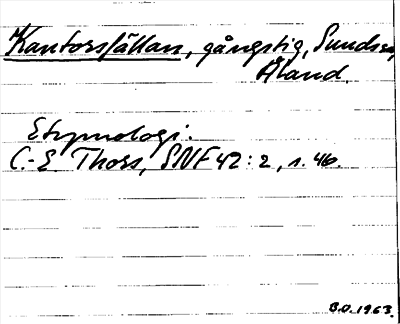 Kantorsfällan, gångstig, Sunds sn,
Åland.
Etymologi:
C.-E. Thors, SNF 42:2, s. 46.
B.O. 1963.